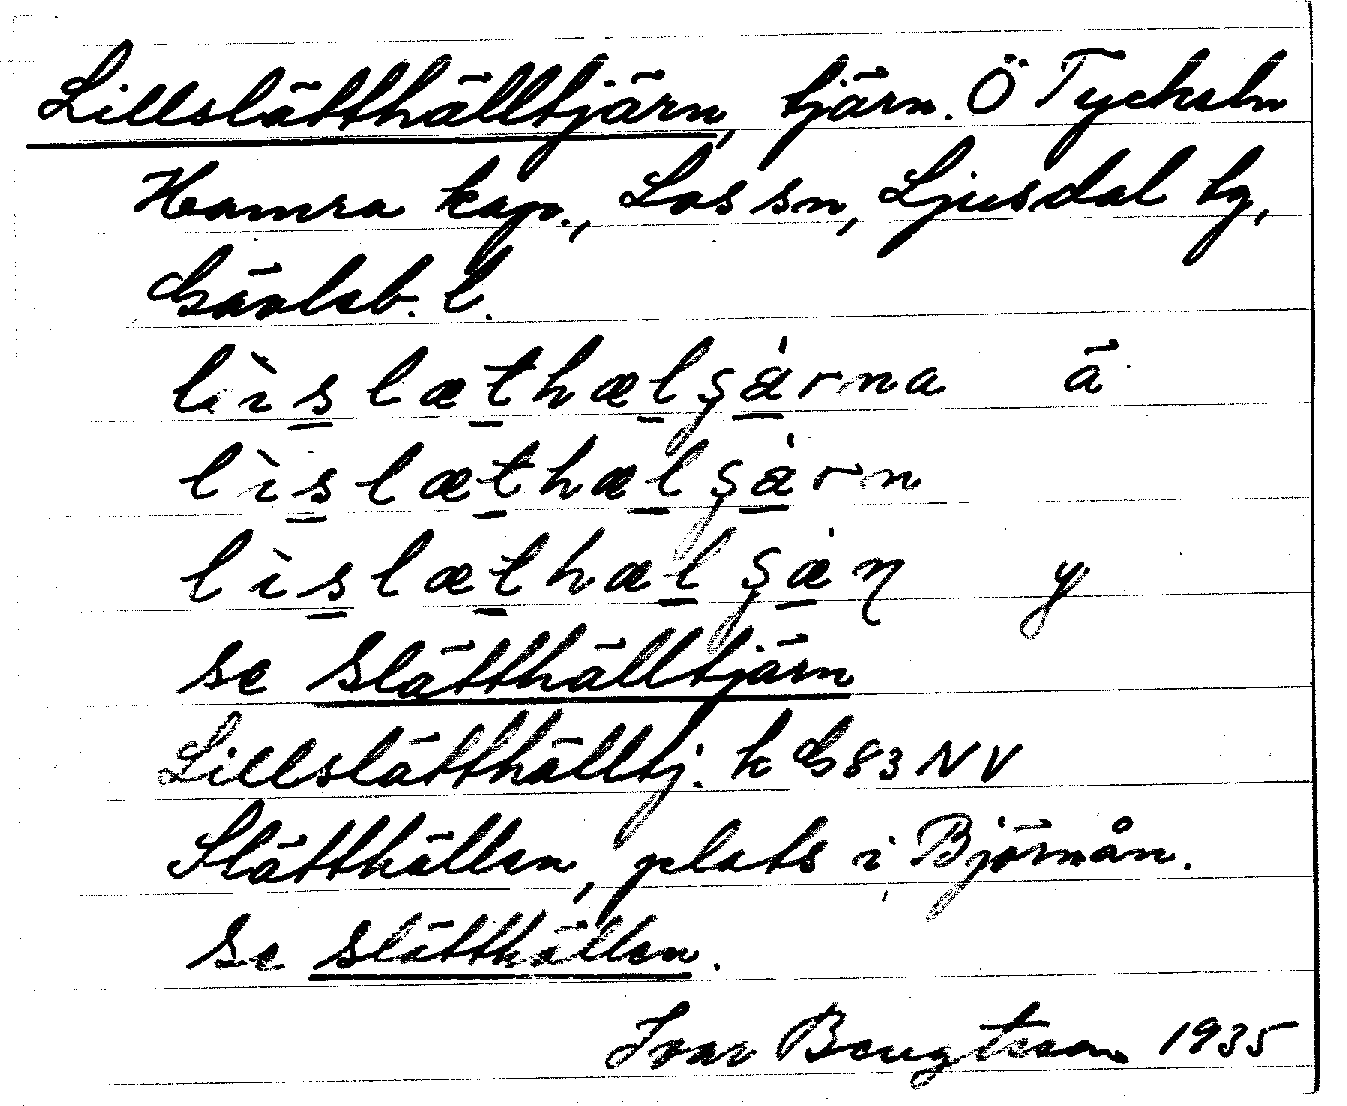 Lillslätthälltjärn, tjärn. Ö Tyckeln
Hamra kap., Los sn, Ljusdal tg,
Gävleb. l.
lìslæthælʂȧ̈rna ä
lìslæthælʂȧ̈rn
lìslæthælʂæ̇ɳ y
se Slätthälltjärn
Lillslätthälltj. k G 83 NV
Slätthällen, plats i Björnån.
Se Slätthällen.
Ivar Bengtsson 1935